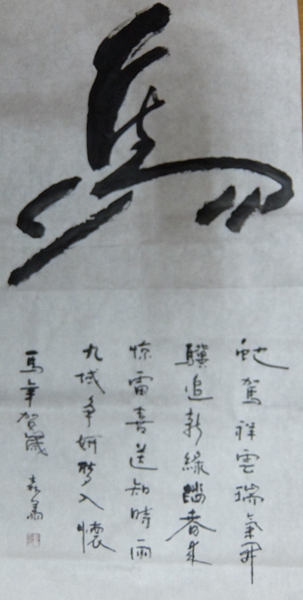 馬
蛇駕祥雲瑞氣開
驥追新綠踏春來
惊雷喜送知時雨
九域爭妍梦入懷
馬年賀歲